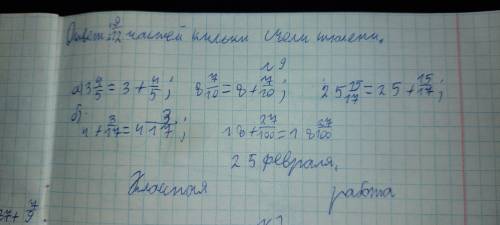 Ответ: 9/12 частей пиццы съели
№9
а) 3 4/5 = 3 + 4/5; 8 7/10 = 8 + 7/10; 25 15/17 = 25 + 15/17;
б) 4 + 3/17 = 4 3/17; 18 + 37/100 = 18 37/100
25 февраля.
Классная работа
37 + 7/9